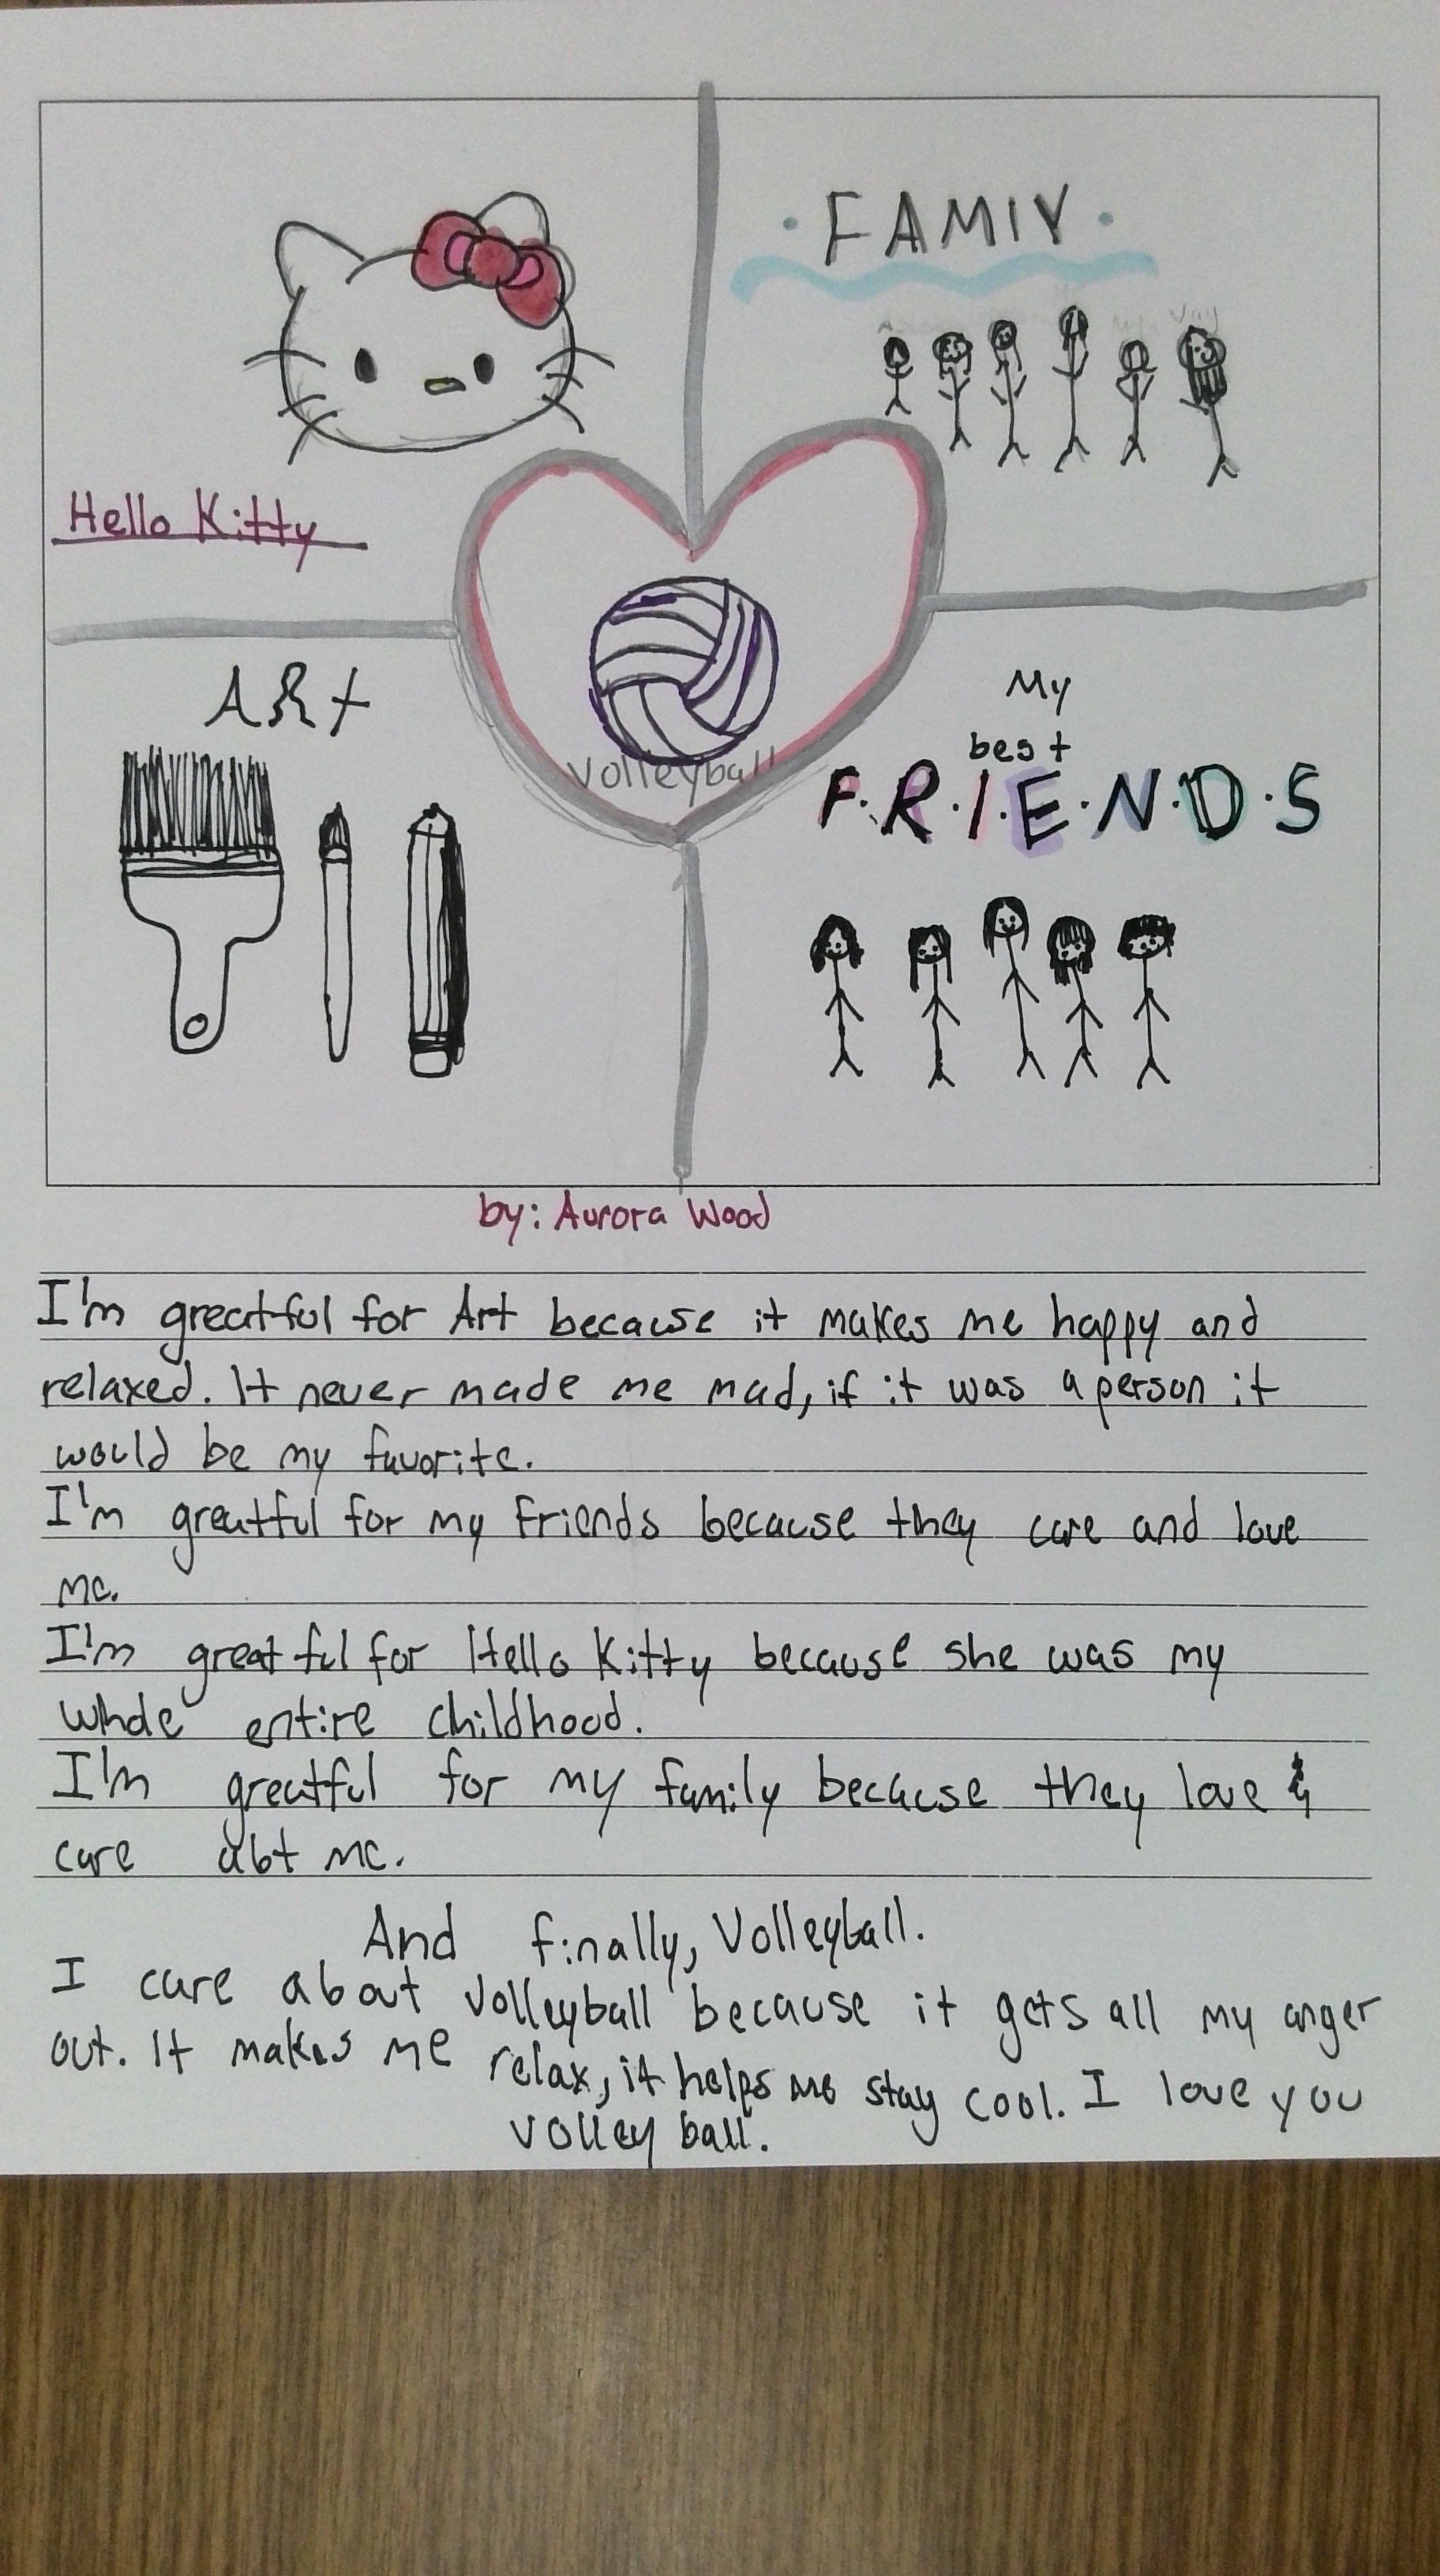 · FAMIY ·
Hello Kitty
Volleyball
ARt
My
best
F·R·I·E·N·D·S
by: Aurora Wood
I'm greatful for Art because it makes me happy and
relaxed. It never made me mad, if it was a person it
would be my favorite.
I'm greatful for my Friends because they care and love
me.
I'm greatful for Hello Kitty because she was my
whole entire childhood.
I'm greatful for my family because they love &
care abt me.
And finally, Volleyball.
I care about volleyball because it gets all my anger
out. It makes me relax, it helps me stay cool. I love you
volley ball.